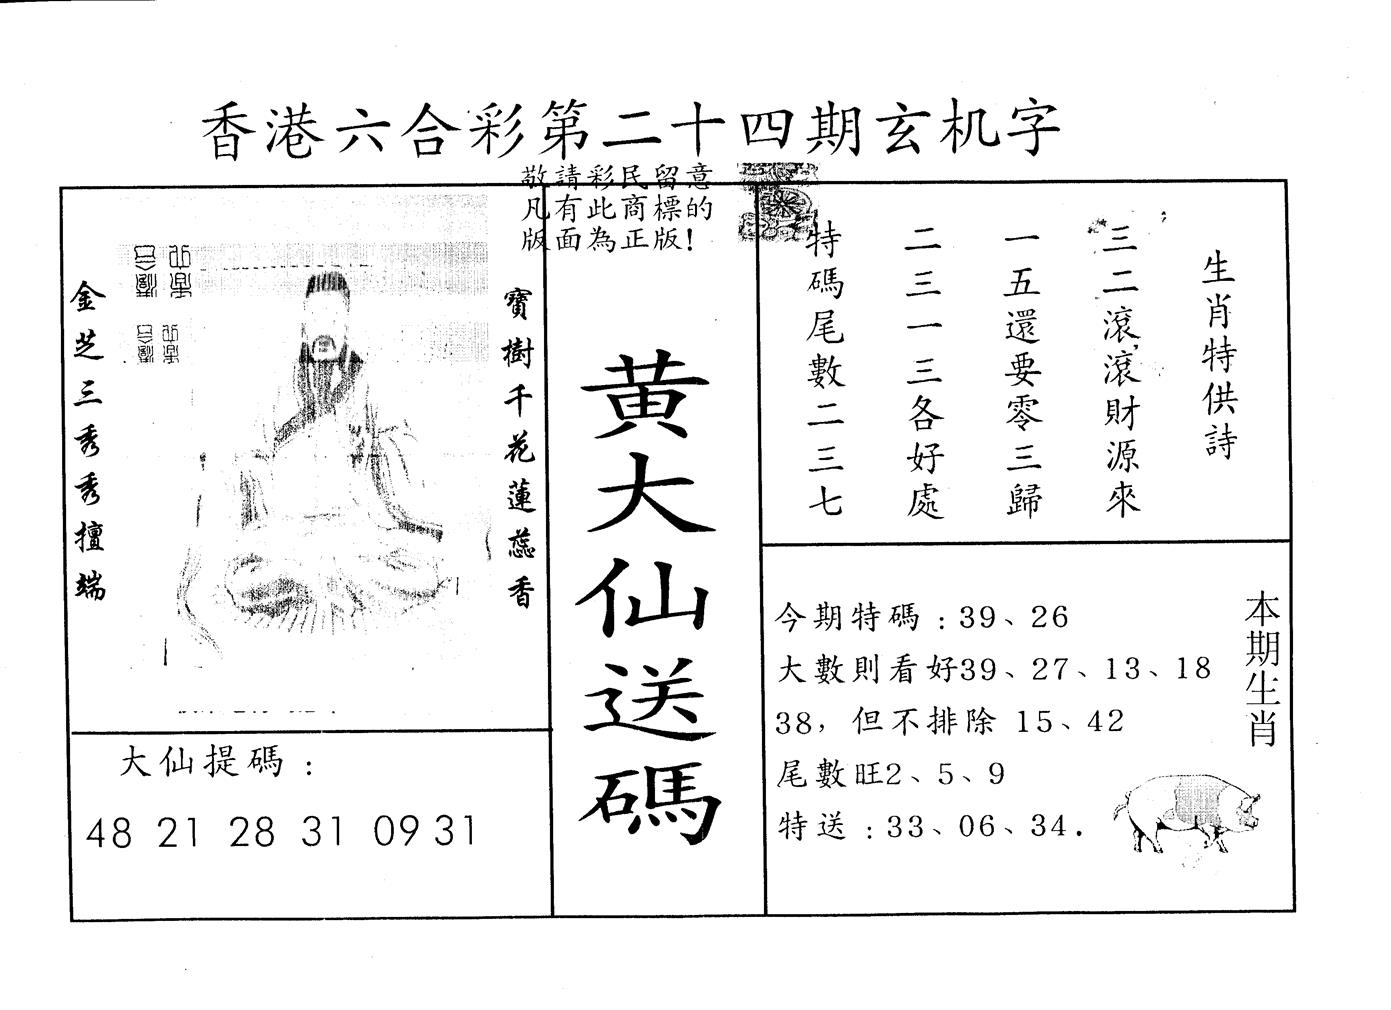 香港六合彩第二十四期玄机字
敬請彩民留意
凡有此商標的
版面為正版!
生肖特供詩
三二滾滾財源來
一五還要零三歸
二三一三各好處
特碼尾數二三七
寶樹千花蓮蕊香
金芝三秀秀擅端
黃大仙送碼
大仙提碼:
48 21 28 31 09 31
本期生肖
今期特碼:39、26
大數則看好39、27、13、18
38,但不排除 15、42
尾數旺2、5、9
特送:33、06、34.